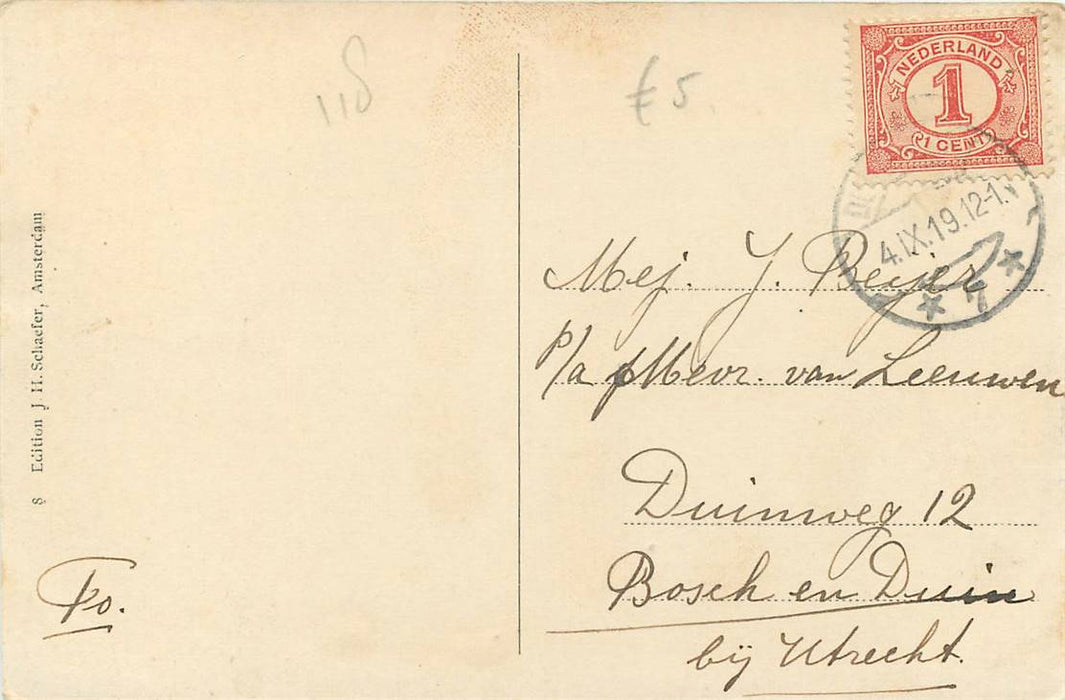 118
£ 5.
NEDERLAND
1
1 CENT
4.IX.19.12-1.N
7
Mej. J. Beijer
p/a Mevr. van Leeuwen
Duinweg 12
Bosch en Duin
bij Utrecht.
8 Edition J. H. Schaefer, Amsterdam
Fo.